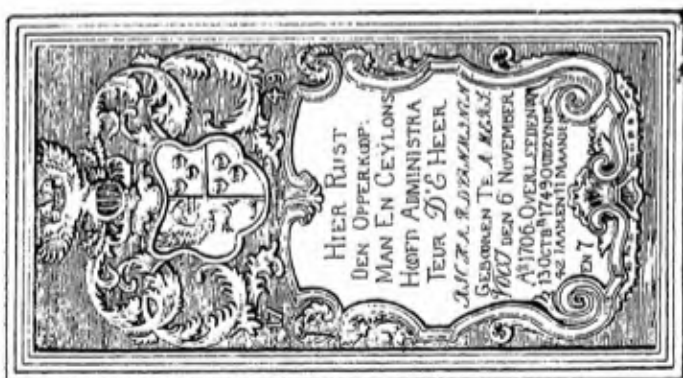 17 49
HIER RUST
DEN OPPERKOOP:
MAN EN CEYLONS
HOOFT ADMINISTRA
TEUR D'E HEER
GEBOOREN TE
DEN 6 NOVEMBER
Aº 1706. OVERLEEDEN
13 OCTBR 1749 OUD ZYNDE
42 IAAREN 11 MAANDEN
EN 7